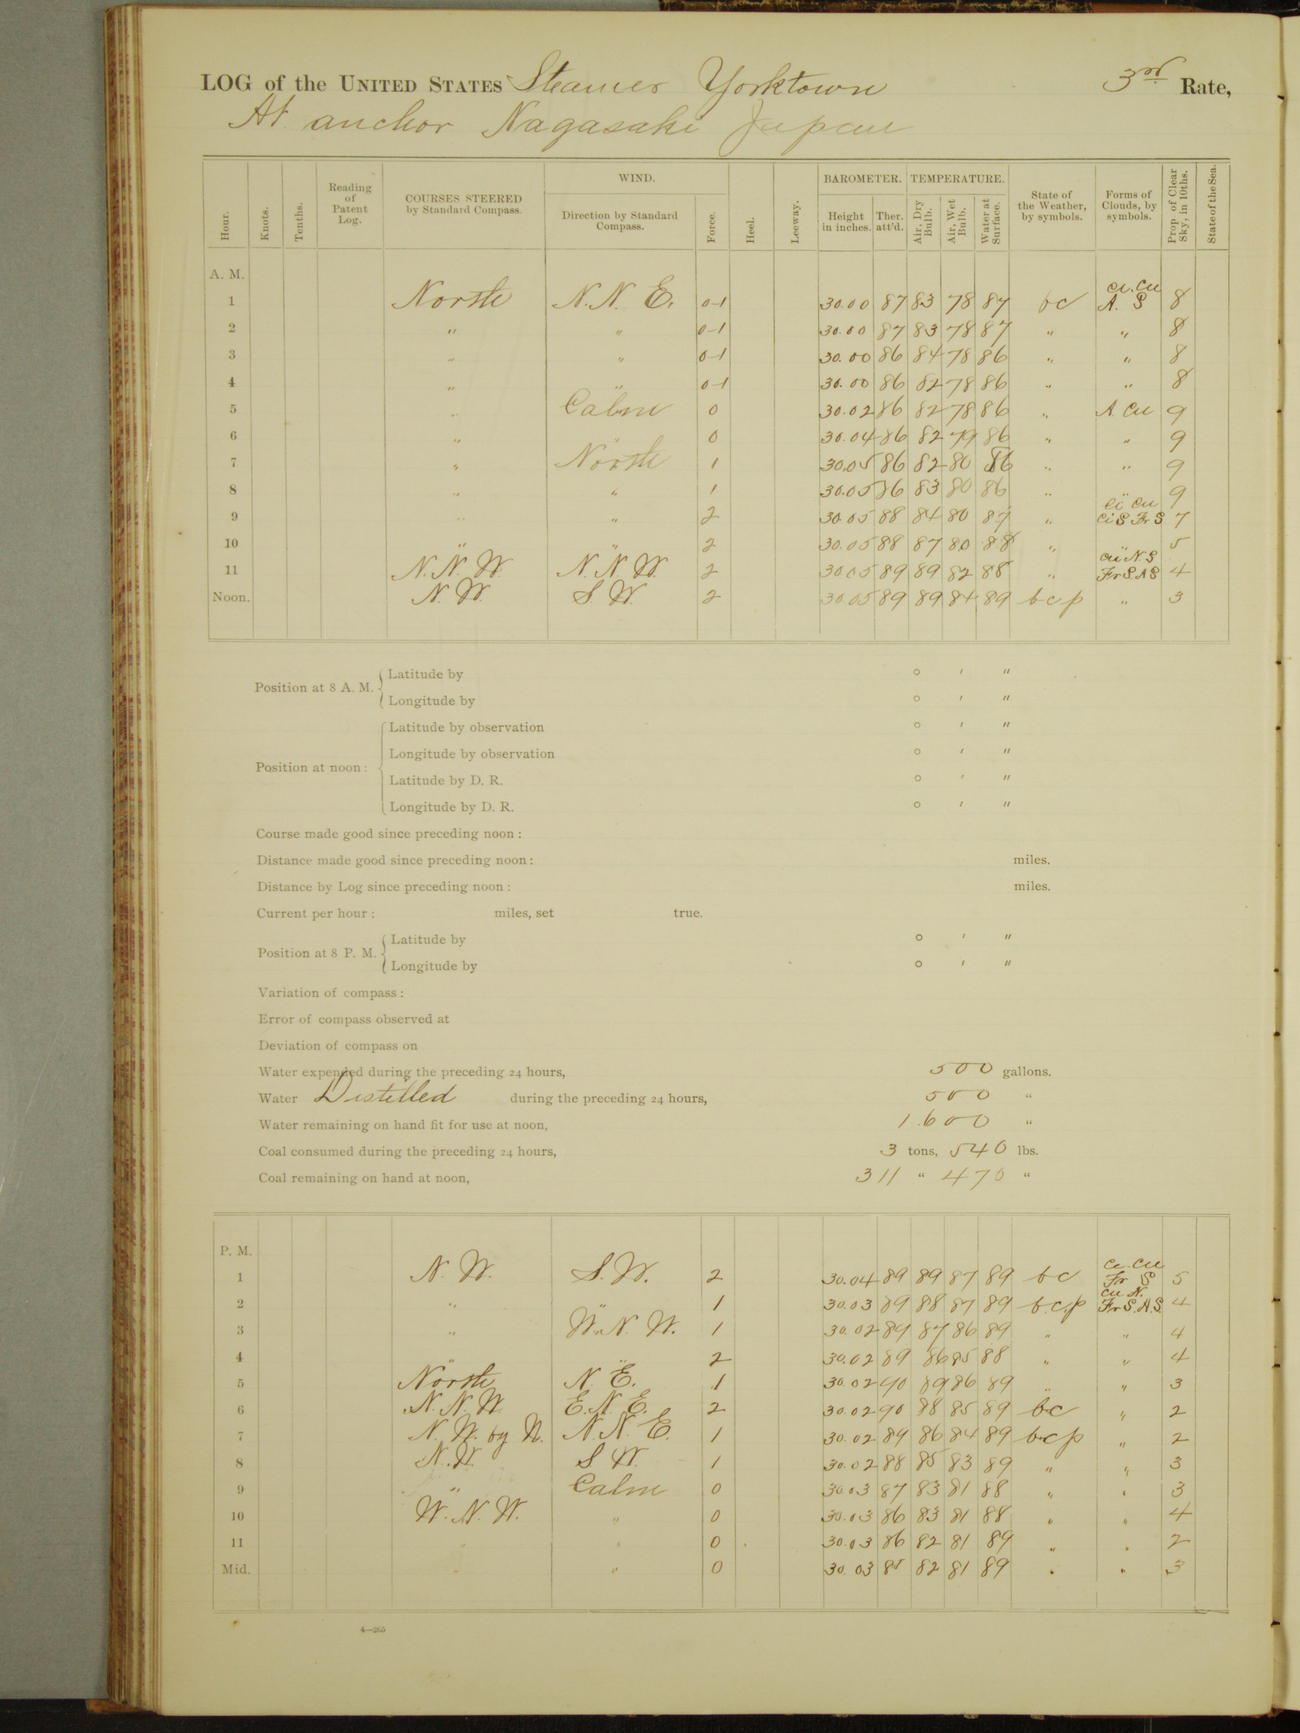 LOG of the UNITED STATES Steamer Yorktown 3rd Rate,
At anchor Nagasaki Japan
Hour. Knots. Tenths. Reading of Patent Log. COURSES STEERED by Standard Compass. WIND. Direction by Standard Compass. Force. Heel. Leeway. BAROMETER. Height in inches. Ther. att'd. TEMPERATURE. Air, Dry Bulb. Air, Wet Bulb. Water at Surface. State of the Weather, by symbols. Forms of Clouds, by symbols. Prop. of Clear Sky, in 10ths. State of the Sea.
A. M.
1 North N.N.E. 0-1 30.00 87 83 78 87 bc A. S 8
2 " " 0-1 30.00 87 83 78 87 " " 8
3 " " 0-1 30.00 86 84 78 86 " " 8
4 " " 0-1 30.00 86 82 78 86 " " 8
5 " Calm 0 30.02 86 82 78 86 " A. Cu 9
6 " " 0 30.04 86 82 79 86 " " 9
7 " North 1 30.05 86 82 80 86 " " 9
8 " " 1 30.05 86 83 80 86 " " 9
9 " " 2 30.05 88 84 80 87 " Ci Cu Ci S Fr S 7
10 " " 2 30.05 88 87 80 88 " " 5
11 N.N.W. N.N.W. 2 30.05 89 89 82 88 " Cu N.S Fr S A S 4
Noon. N.W. S.W. 2 30.05 89 89 84 89 bcp " 3
Position at 8 A. M. Latitude by ° ' "
Longitude by ° ' "
Position at noon: Latitude by observation ° ' "
Longitude by observation ° ' "
Latitude by D. R. ° ' "
Longitude by D. R. ° ' "
Course made good since preceding noon:
Distance made good since preceding noon: miles.
Distance by Log since preceding noon: miles.
Current per hour: miles, set true.
Position at 8 P. M. Latitude by ° ' "
Longitude by ° ' "
Variation of compass:
Error of compass observed at
Deviation of compass on
Water expended during the preceding 24 hours, 500 gallons.
Water Distilled during the preceding 24 hours, 500 "
Water remaining on hand fit for use at noon, 1.600 "
Coal consumed during the preceding 24 hours, 3 tons, 540 lbs.
Coal remaining on hand at noon, 311 " 470 "
P. M.
1 N.W. S.W. 2 30.04 89 89 87 89 bc Fr S 5
2 " " 1 30.03 89 88 87 89 b.c.p Cu N. Fr S.A.S 4
3 " W.N.W. 1 30.02 89 87 86 89 " " 4
4 " " 2 30.02 89 86 85 88 " " 4
5 North N.E. 1 30.02 90 89 86 89 " " 3
6 N.N.W. E.N.E. 2 30.02 90 88 85 89 bc " 2
7 N.W. by N. N.N.E. 1 30.02 89 86 84 89 bcp " 2
8 N.W. S.W. 1 30.02 88 85 83 89 " " 3
9 " Calm 0 30.03 87 83 81 88 " " 3
10 W.N.W. " 0 30.03 86 83 81 88 " " 4
11 " " 0 30.03 86 82 81 89 " " 2
Mid. " " 0 30.03 85 82 81 89 " " 3
4—265